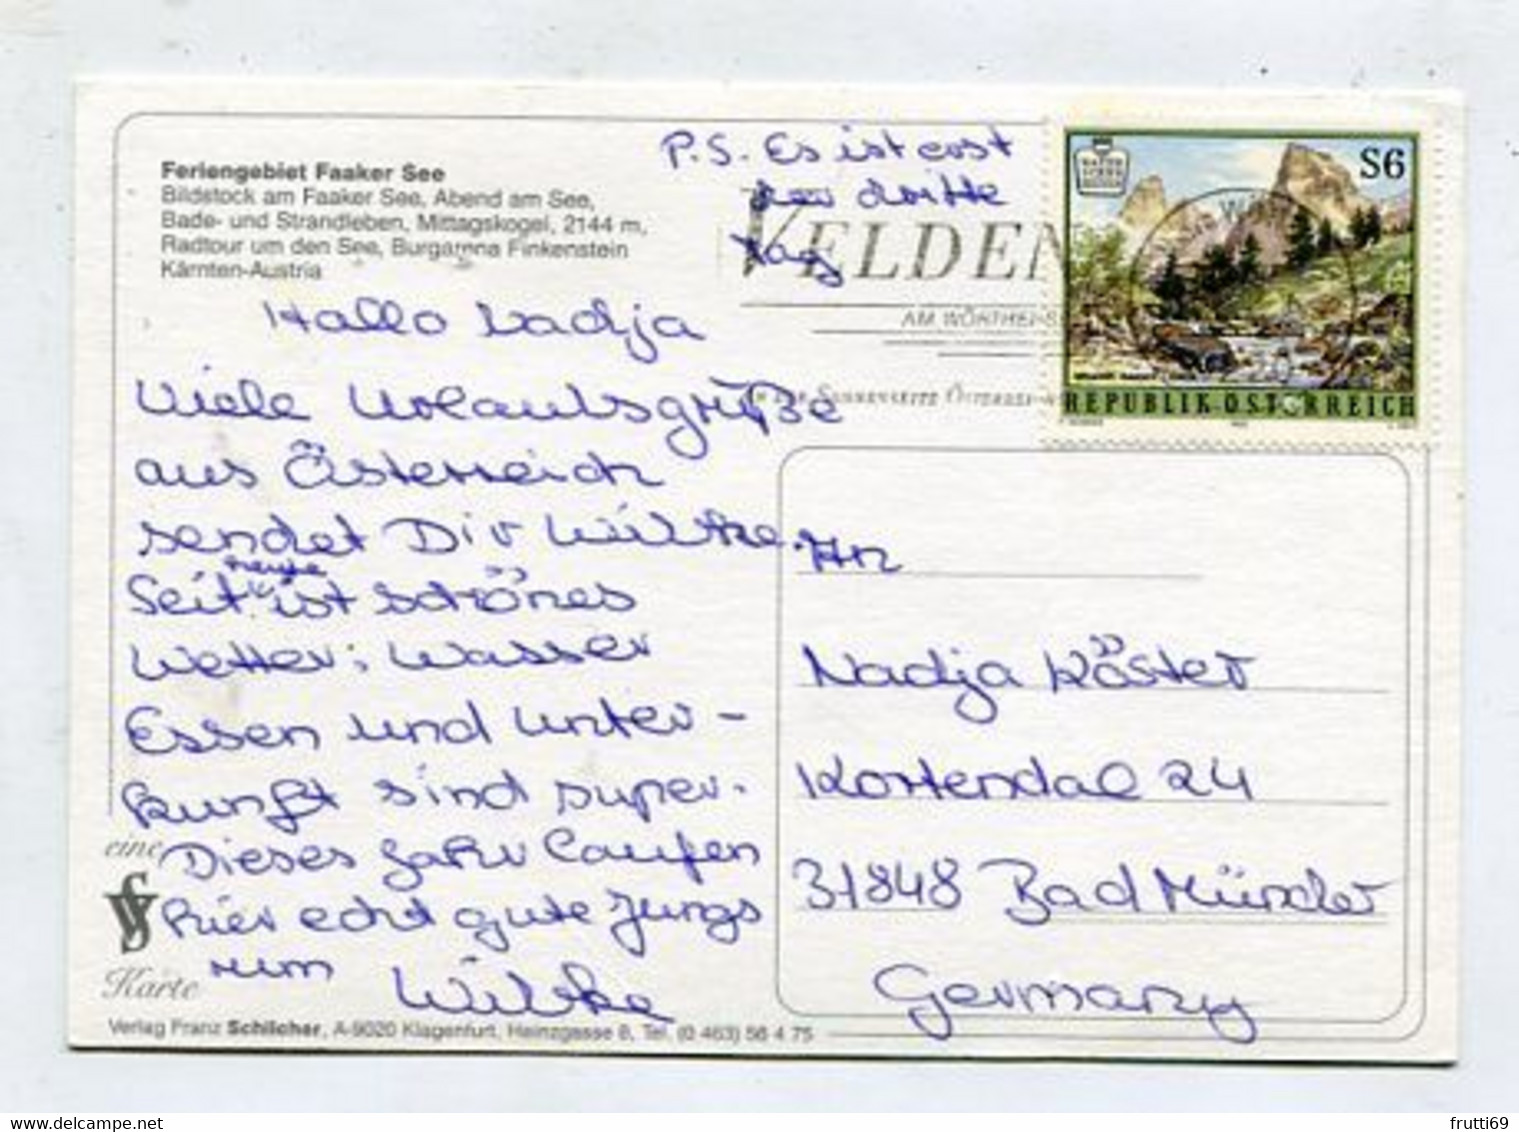 Feriengebiet Faaker See
Bildstock am Faaker See, Abend am See,
Bade- und Strandleben, Mittagskogel, 2144 m,
Radtour um den See, Burgarena Finkenstein
Kärnten-Austria
P.S. Es ist erst
der dritte
tag
VELDEN
AM WÖRTHER S
SONNENSEITE ÖSTERREI
S6
REPUBLIK ÖSTERREICH
Hallo Nadja
Viele Urlaubsgrüße
aus Österreich
sendet Dir Wiebke.
heute
Seit ist schönes
Wetter; Wasser
Essen und Unter-
kunft sind super.
Dieses Jahr laufen
hier echt gute Jungs
rum Wiebke
An
Nadja Köster
Kortendal 24
31848 Bad Münder
Germany
eine
Karte
Verlag Franz Schilcher, A-9020 Klagenfurt, Hainzgasse 8, Tel. (0 463) 56 4 75
frutti69